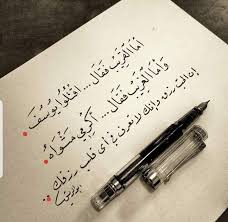 أما القريب فقال... اقتلوا يوسف
وأما الغريب فقال... أكرمي مثواه
إن الحب رزق وإنك لا تعرف في أي قلب رزقك